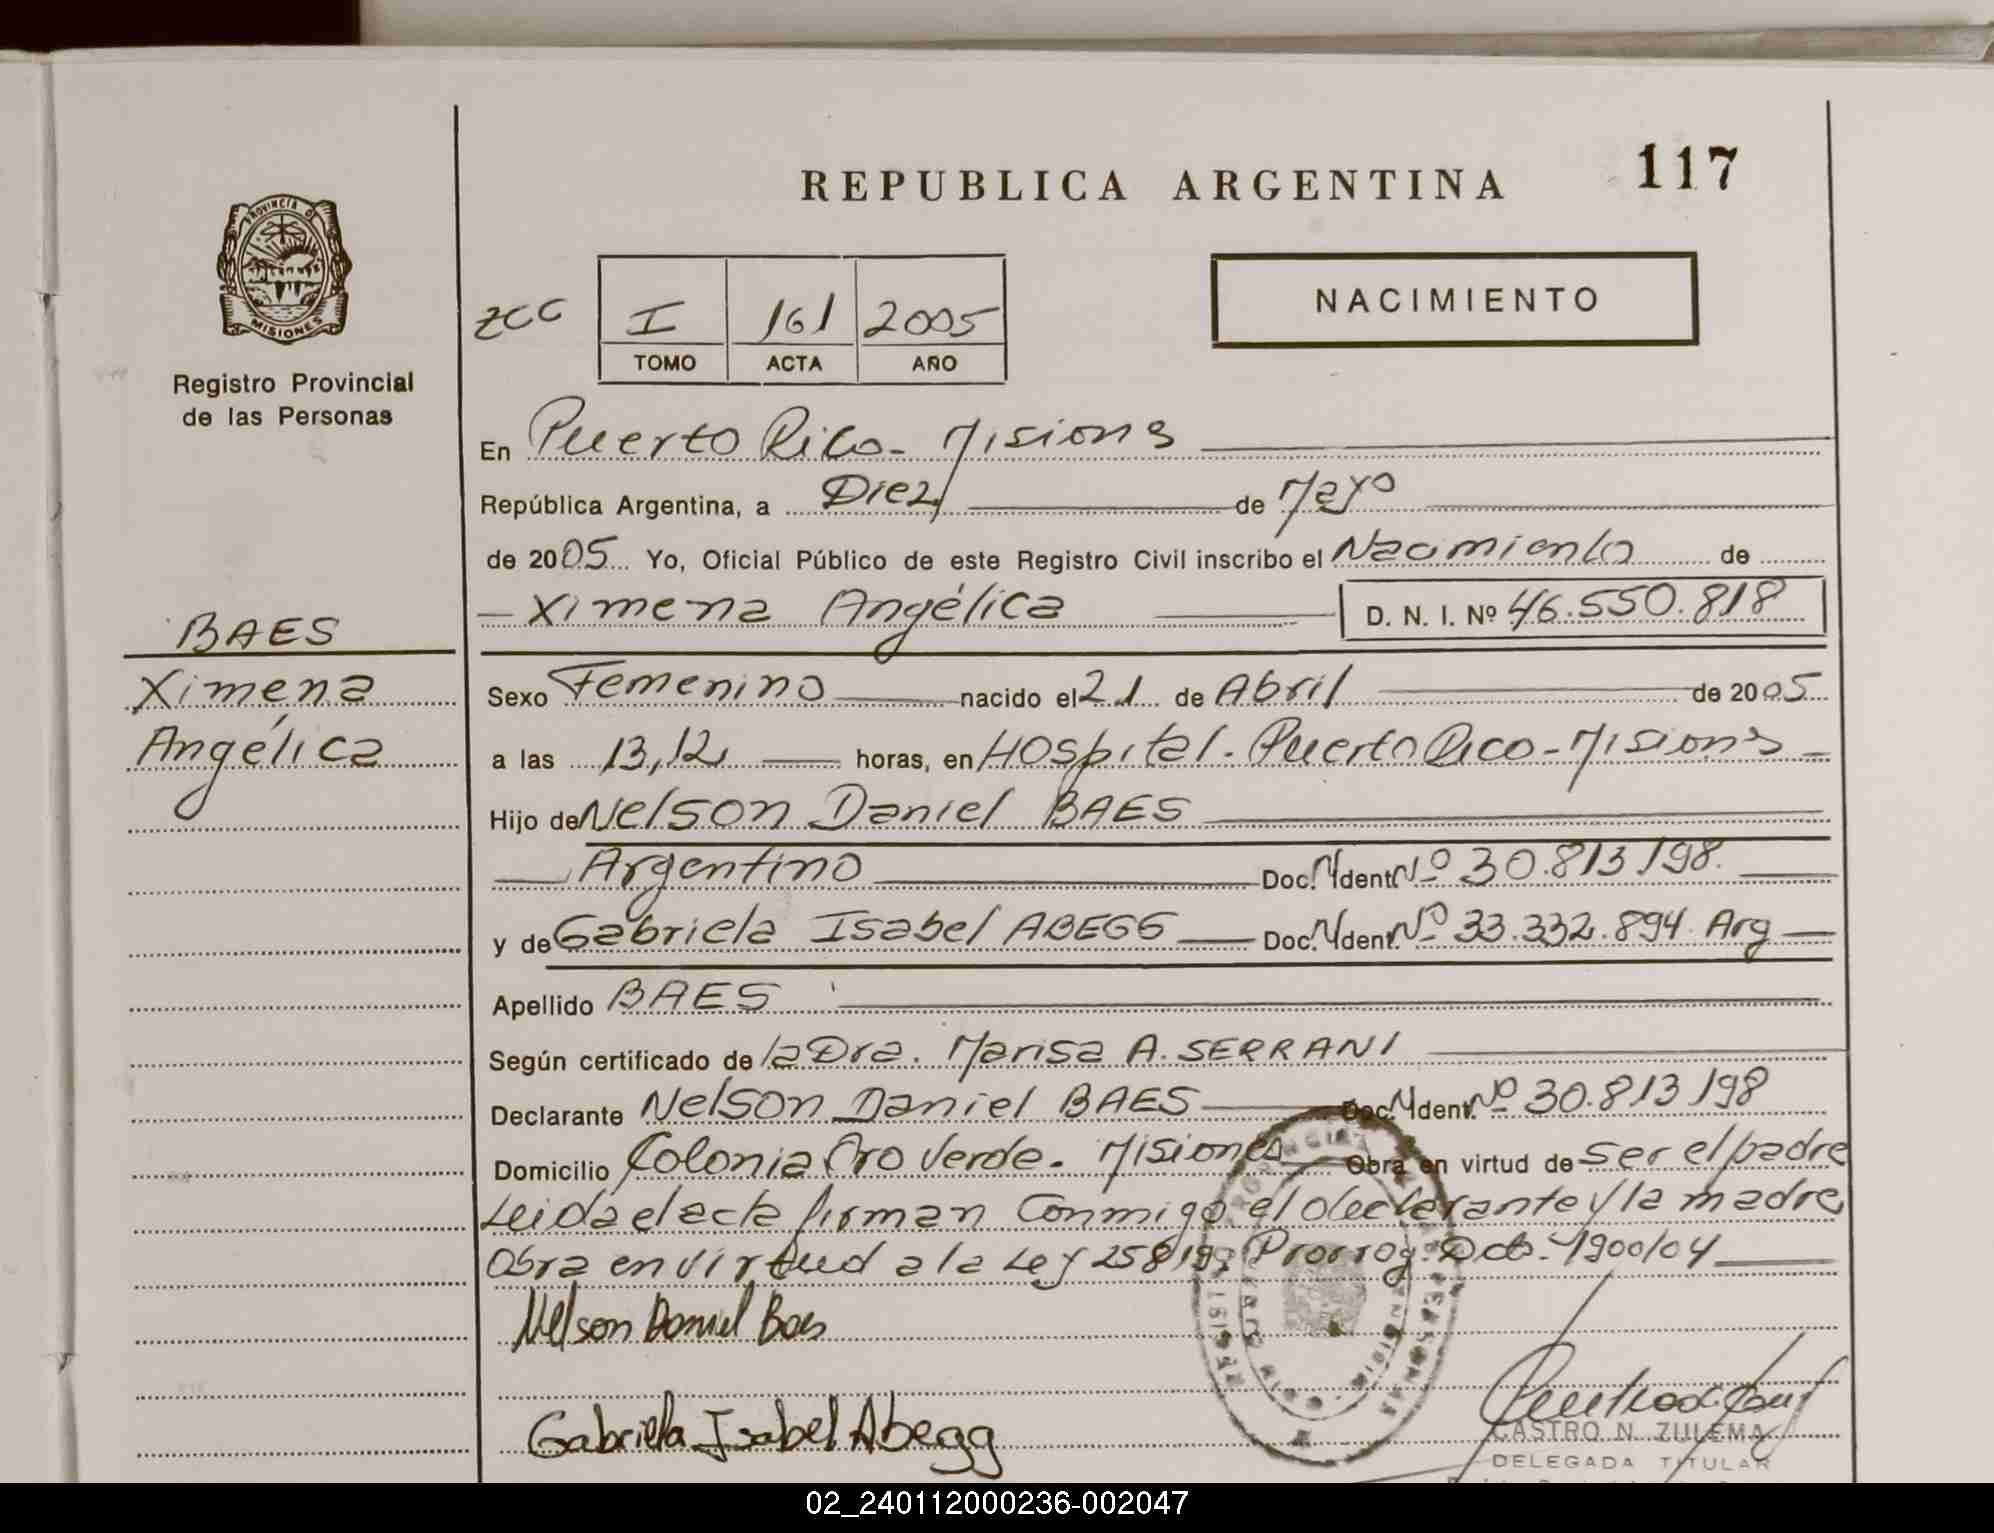 REPUBLICA ARGENTINA 117
PROVINCIA DE
MISIONES
Registro Provincial
de las Personas
ZCC I 161 2005
TOMO ACTA AÑO
NACIMIENTO
En Puerto Rico - Misiones
República Argentina, a Diez de Mayo
de 2005 Yo, Oficial Público de este Registro Civil inscribo el Nacimiento de
Ximena Angélica D. N. I. Nº 46.550.818
BAES
Ximena
Angélica
Sexo Femenino nacido el 21 de Abril de 2005
a las 13,12 horas, en Hospital - Puerto Rico - Misiones
Hijo de Nelson Daniel BAES
Argentino Doc. Ident. Nº 30.813.198.
y de Gabriela Isabel ABEGG Doc. Ident. Nº 33.332.894 Arg
Apellido BAES
Según certificado de la Dra. Marisa A. SERRANI
Declarante Nelson Daniel BAES Doc. Ident. Nº 30.813.198
Domicilio Colonia Oro Verde. Misiones Obra en virtud de ser el padre
Leida el acta firman conmigo el declarante y la madre
Obra en virtud a la Ley 25819, Prorrog. Dcto. 1900/04
Nelson Daniel Baes
Gabriela Isabel Abegg
CASTRO N. ZULEMA
DELEGADA TITULAR
02_240112000236-002047